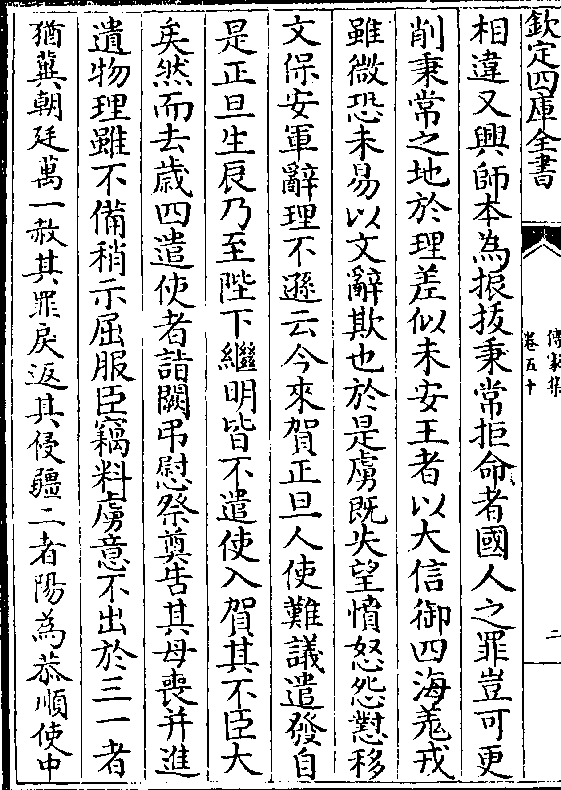 欽定四庫全書
傳家集
卷五十
二
相違又興師本為振拔秉常拒命者國人之罪豈可更
削秉常之地於理差似未安王者以大信御四海羗戎
雖微恐未易以文辭欺也於是虜既失望憤怒怨懟移
文保安軍辭理不遜云今來賀正旦人使難議遣發自
是正旦生辰乃至陛下繼明皆不遣使入賀其不臣大
矣然而去歳四遣使者詣闕弔慰祭奠告其母喪并進
遺物理雖不備稍示屈服臣竊料虜意不出於三一者
猶冀朝廷萬一赦其罪戾返其侵疆二者陽為恭順使中